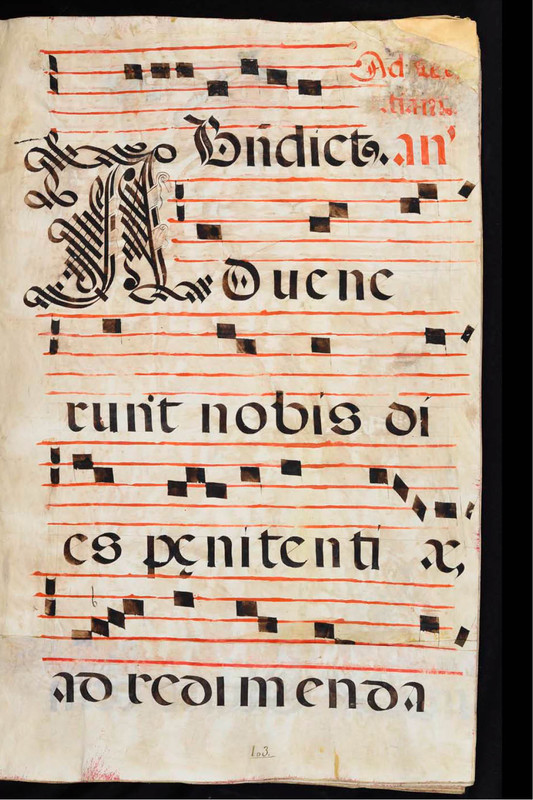 Ad
Bńdict9. an'
Aduene
runt nobis di
es pęnitenti æ,
ad redimenda
103.